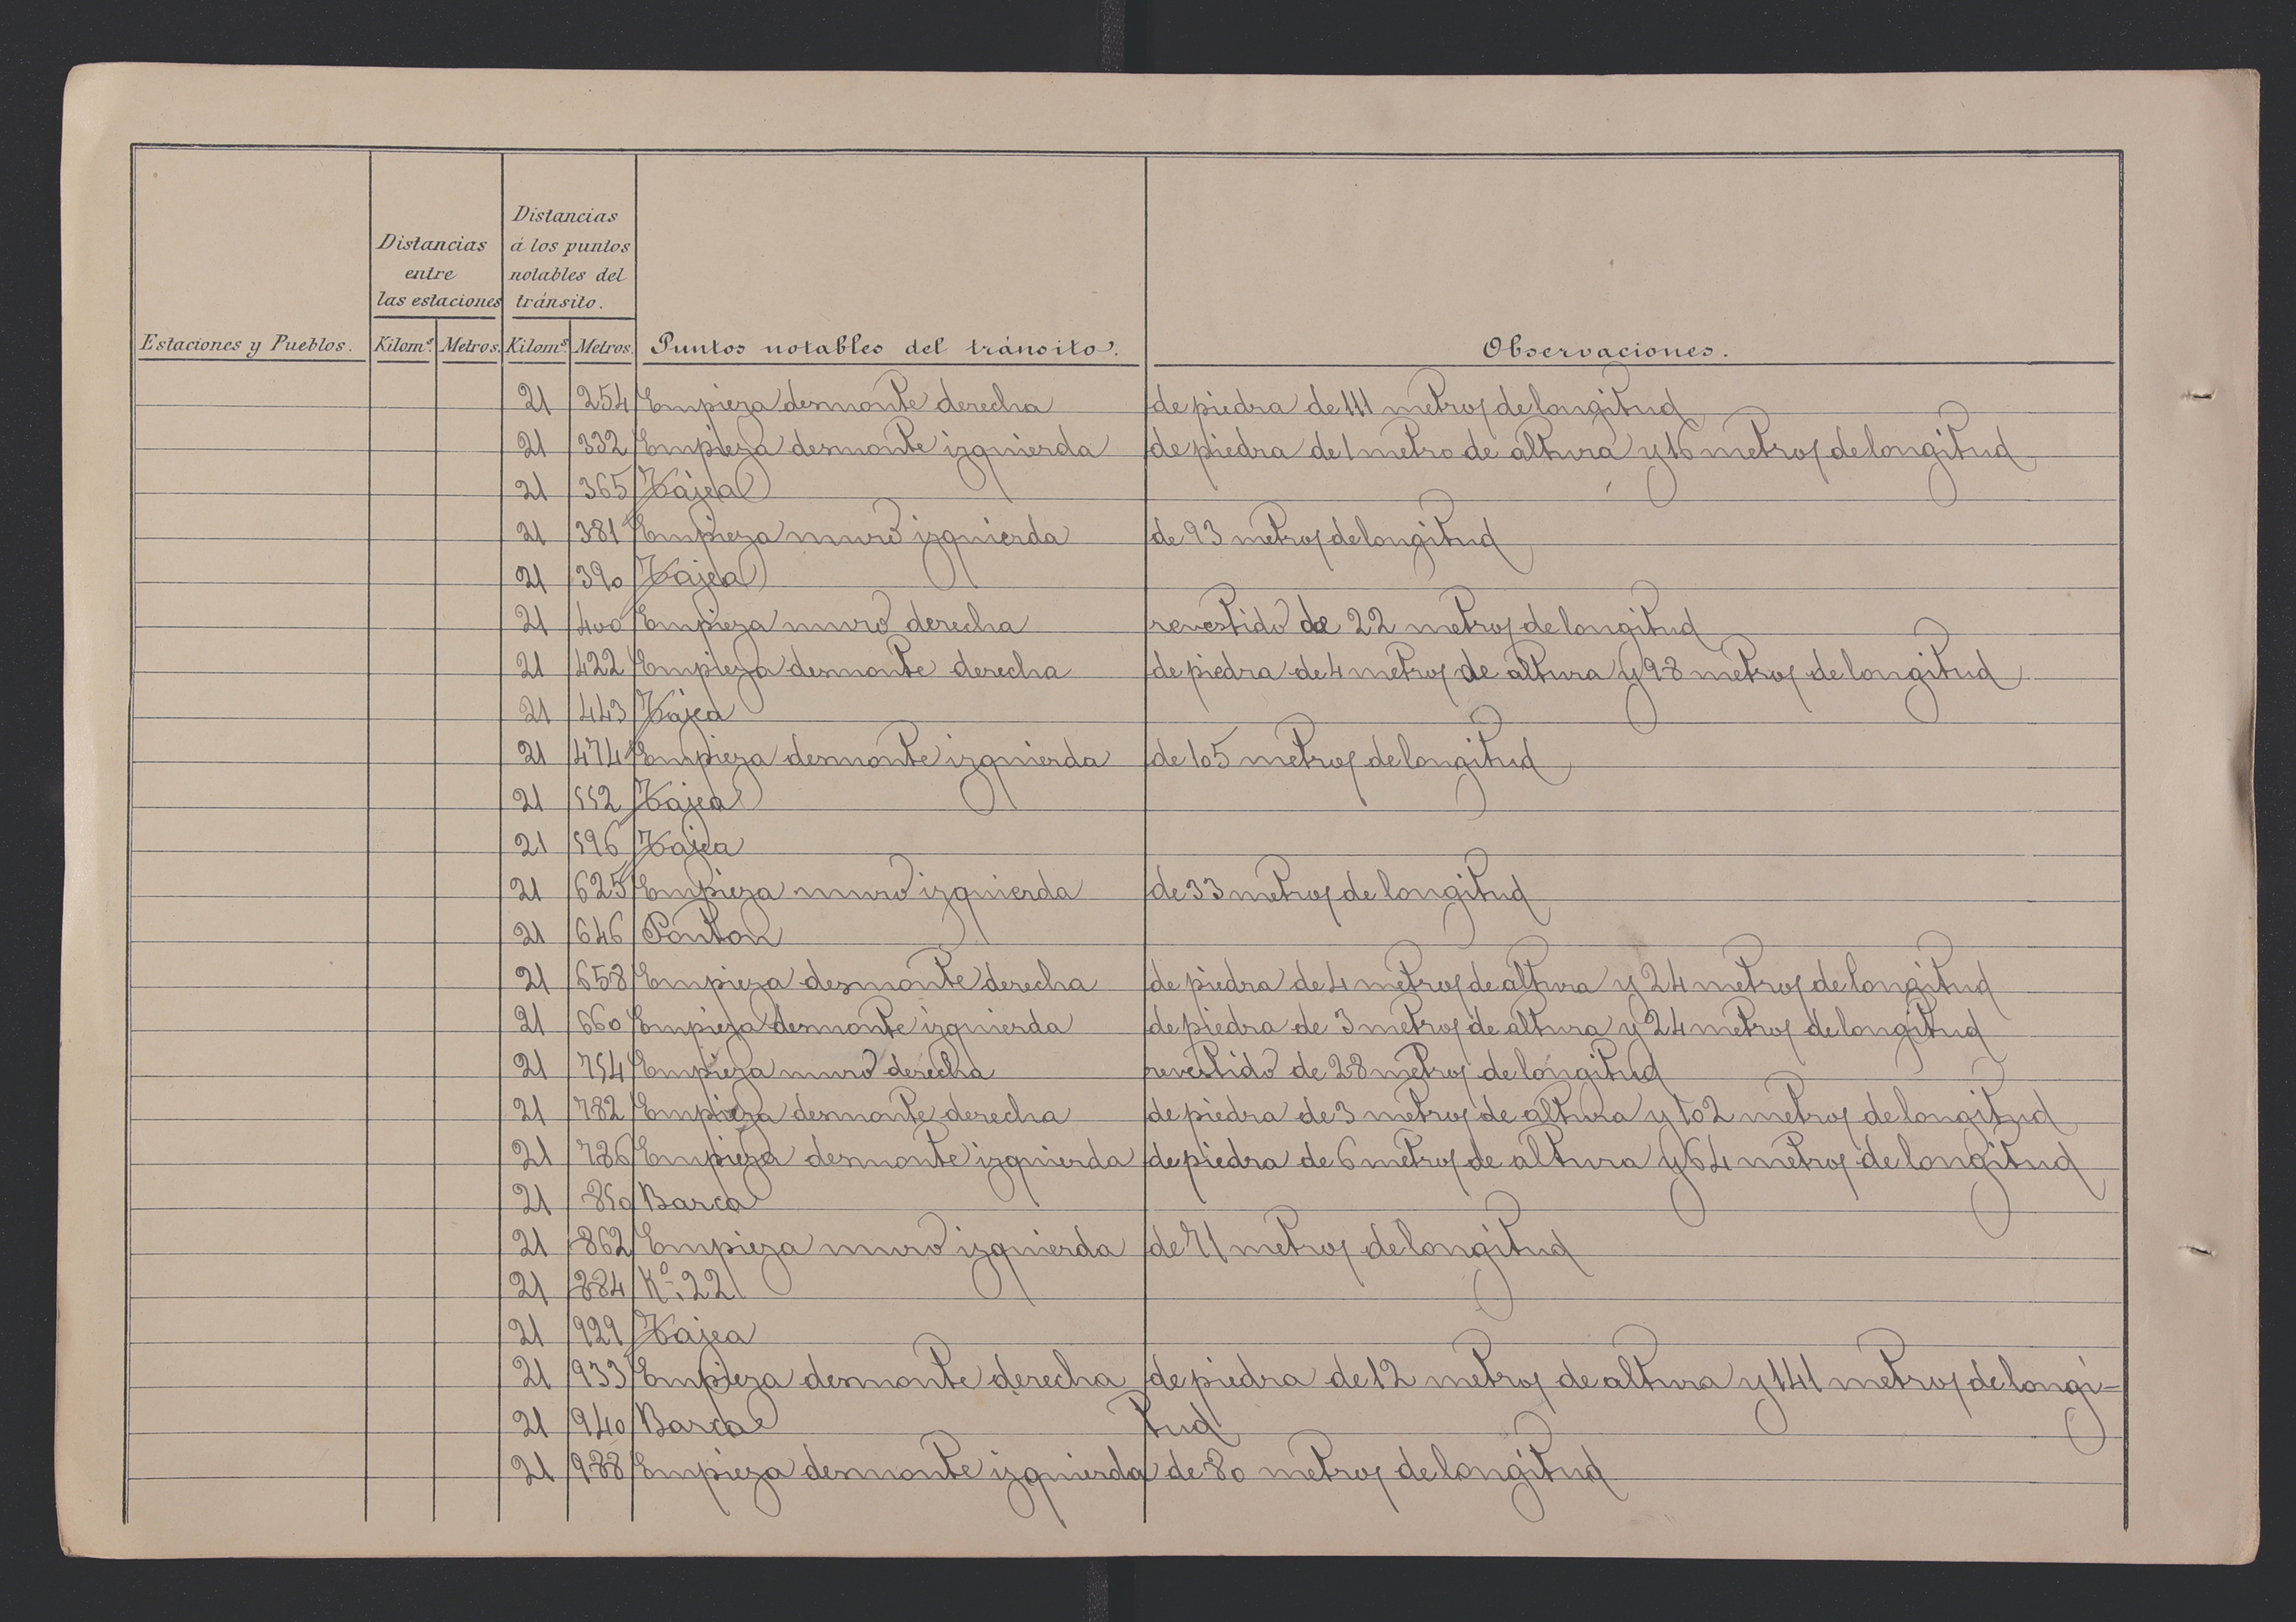 Estaciones y Pueblos.
Distancias
entre
las estaciones
Kilom.s Metros.
Distancias
á los puntos
notables del
tránsito.
Kilom.s Metros.
Puntos notables del tránsito.
Observaciones.
21 254 Empieza desmonte derecha de piedra de 111 metros de longitud
21 332 Empieza desmonte izquierda de piedra de 1 metro de altura y 16 metros de longitud
21 365 Tajea
21 381 Empieza muro izquierda de 93 metros de longitud
21 390 Tajea
21 400 Empieza muro derecha revestido de 22 metros de longitud
21 422 Empieza desmonte derecha de piedra de 4 metros de altura y 98 metros de longitud
21 443 Tajea
21 474 Empieza desmonte izquierda de 105 metros de longitud
21 552 Tajea
21 596 Tajea
21 625 Empieza muro izquierda de 33 metros de longitud
21 646 Ponton
21 658 Empieza desmonte derecha de piedra de 4 metros de altura y 24 metros de longitud
21 660 Empieza desmonte izquierda de piedra de 3 metros de altura y 24 metros de longitud
21 754 Empieza muro derecha revestido de 28 metros de longitud
21 782 Empieza desmonte derecha de piedra de 3 metros de altura y 102 metros de longitud
21 786 Empieza desmonte izquierda de piedra de 6 metros de altura y 64 metros de longitud
21 850 Barca
21 862 Empieza muro izquierda de 71 metros de longitud
21 884 Kº 22
21 929 Tajea
21 933 Empieza desmonte derecha de piedra de 12 metros de altura y 141 metros de longi-
21 940 Barca tud
21 988 Empieza desmonte izquierda de 80 metros de longitud